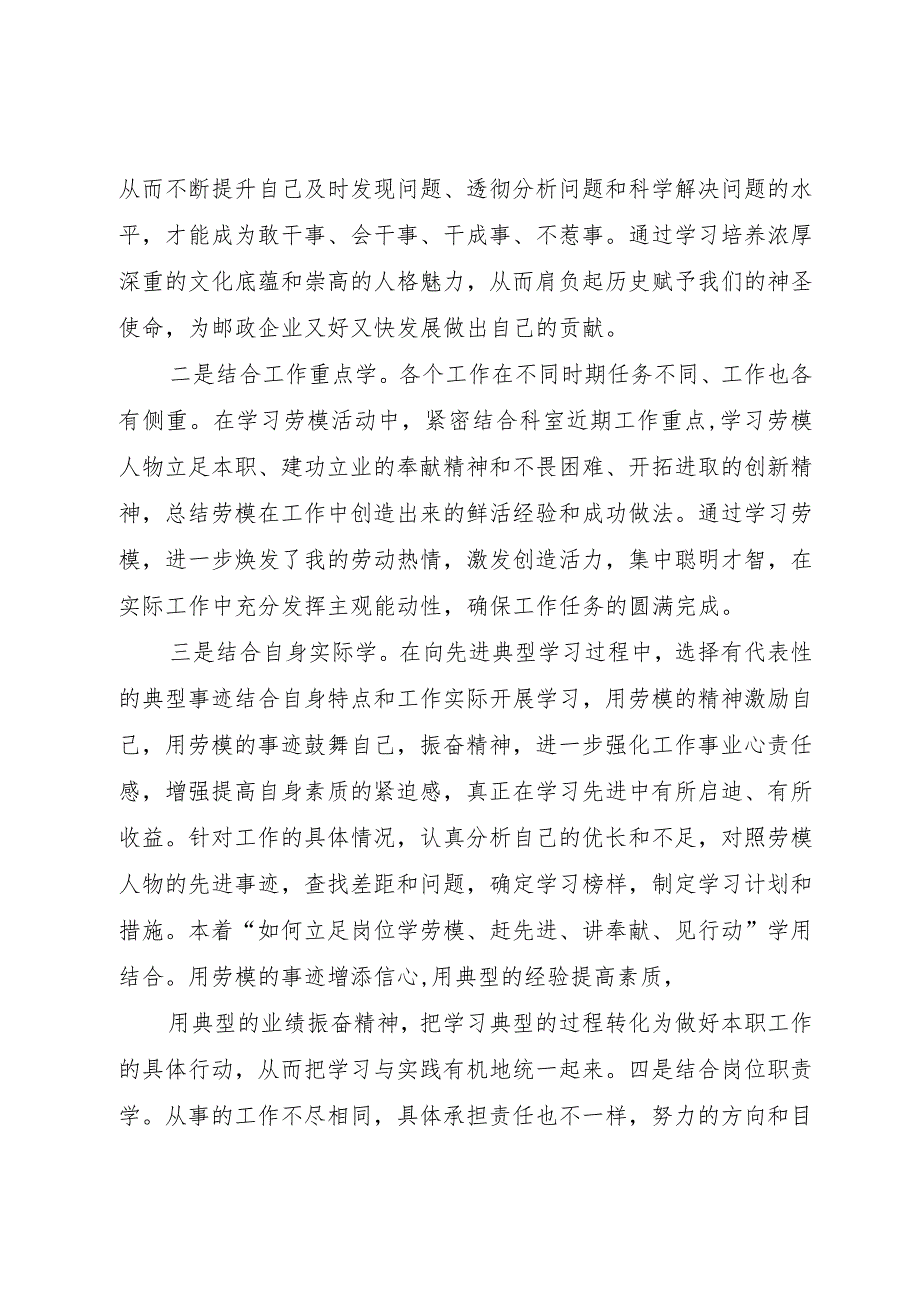 从而不断提升自己及时发现问题、透彻分析问题和科学解决问题的水
平，才能成为敢干事、会干事、干成事、不惹事。通过学习培养浓厚
深重的文化底蕴和崇高的人格魅力，从而肩负起历史赋予我们的神圣
使命，为邮政企业又好又快发展做出自己的贡献。
二是结合工作重点学。各个工作在不同时期任务不同、工作也各
有侧重。在学习劳模活动中，紧密结合科室近期工作重点,学习劳模
人物立足本职、建功立业的奉献精神和不畏困难、开拓进取的创新精
神，总结劳模在工作中创造出来的鲜活经验和成功做法。通过学习劳
模，进一步焕发了我的劳动热情，激发创造活力，集中聪明才智，在
实际工作中充分发挥主观能动性，确保工作任务的圆满完成。
三是结合自身实际学。在向先进典型学习过程中，选择有代表性
的典型事迹结合自身特点和工作实际开展学习，用劳模的精神激励自
己，用劳模的事迹鼓舞自己，振奋精神，进一步强化工作事业心责任
感，增强提高自身素质的紧迫感，真正在学习先进中有所启迪、有所
收益。针对工作的具体情况，认真分析自己的优长和不足，对照劳模
人物的先进事迹，查找差距和问题，确定学习榜样，制定学习计划和
措施。本着“如何立足岗位学劳模、赶先进、讲奉献、见行动”学用
结合。用劳模的事迹增添信心,用典型的经验提高素质，
用典型的业绩振奋精神，把学习典型的过程转化为做好本职工作
的具体行动，从而把学习与实践有机地统一起来。四是结合岗位职责
学。从事的工作不尽相同，具体承担责任也不一样，努力的方向和目